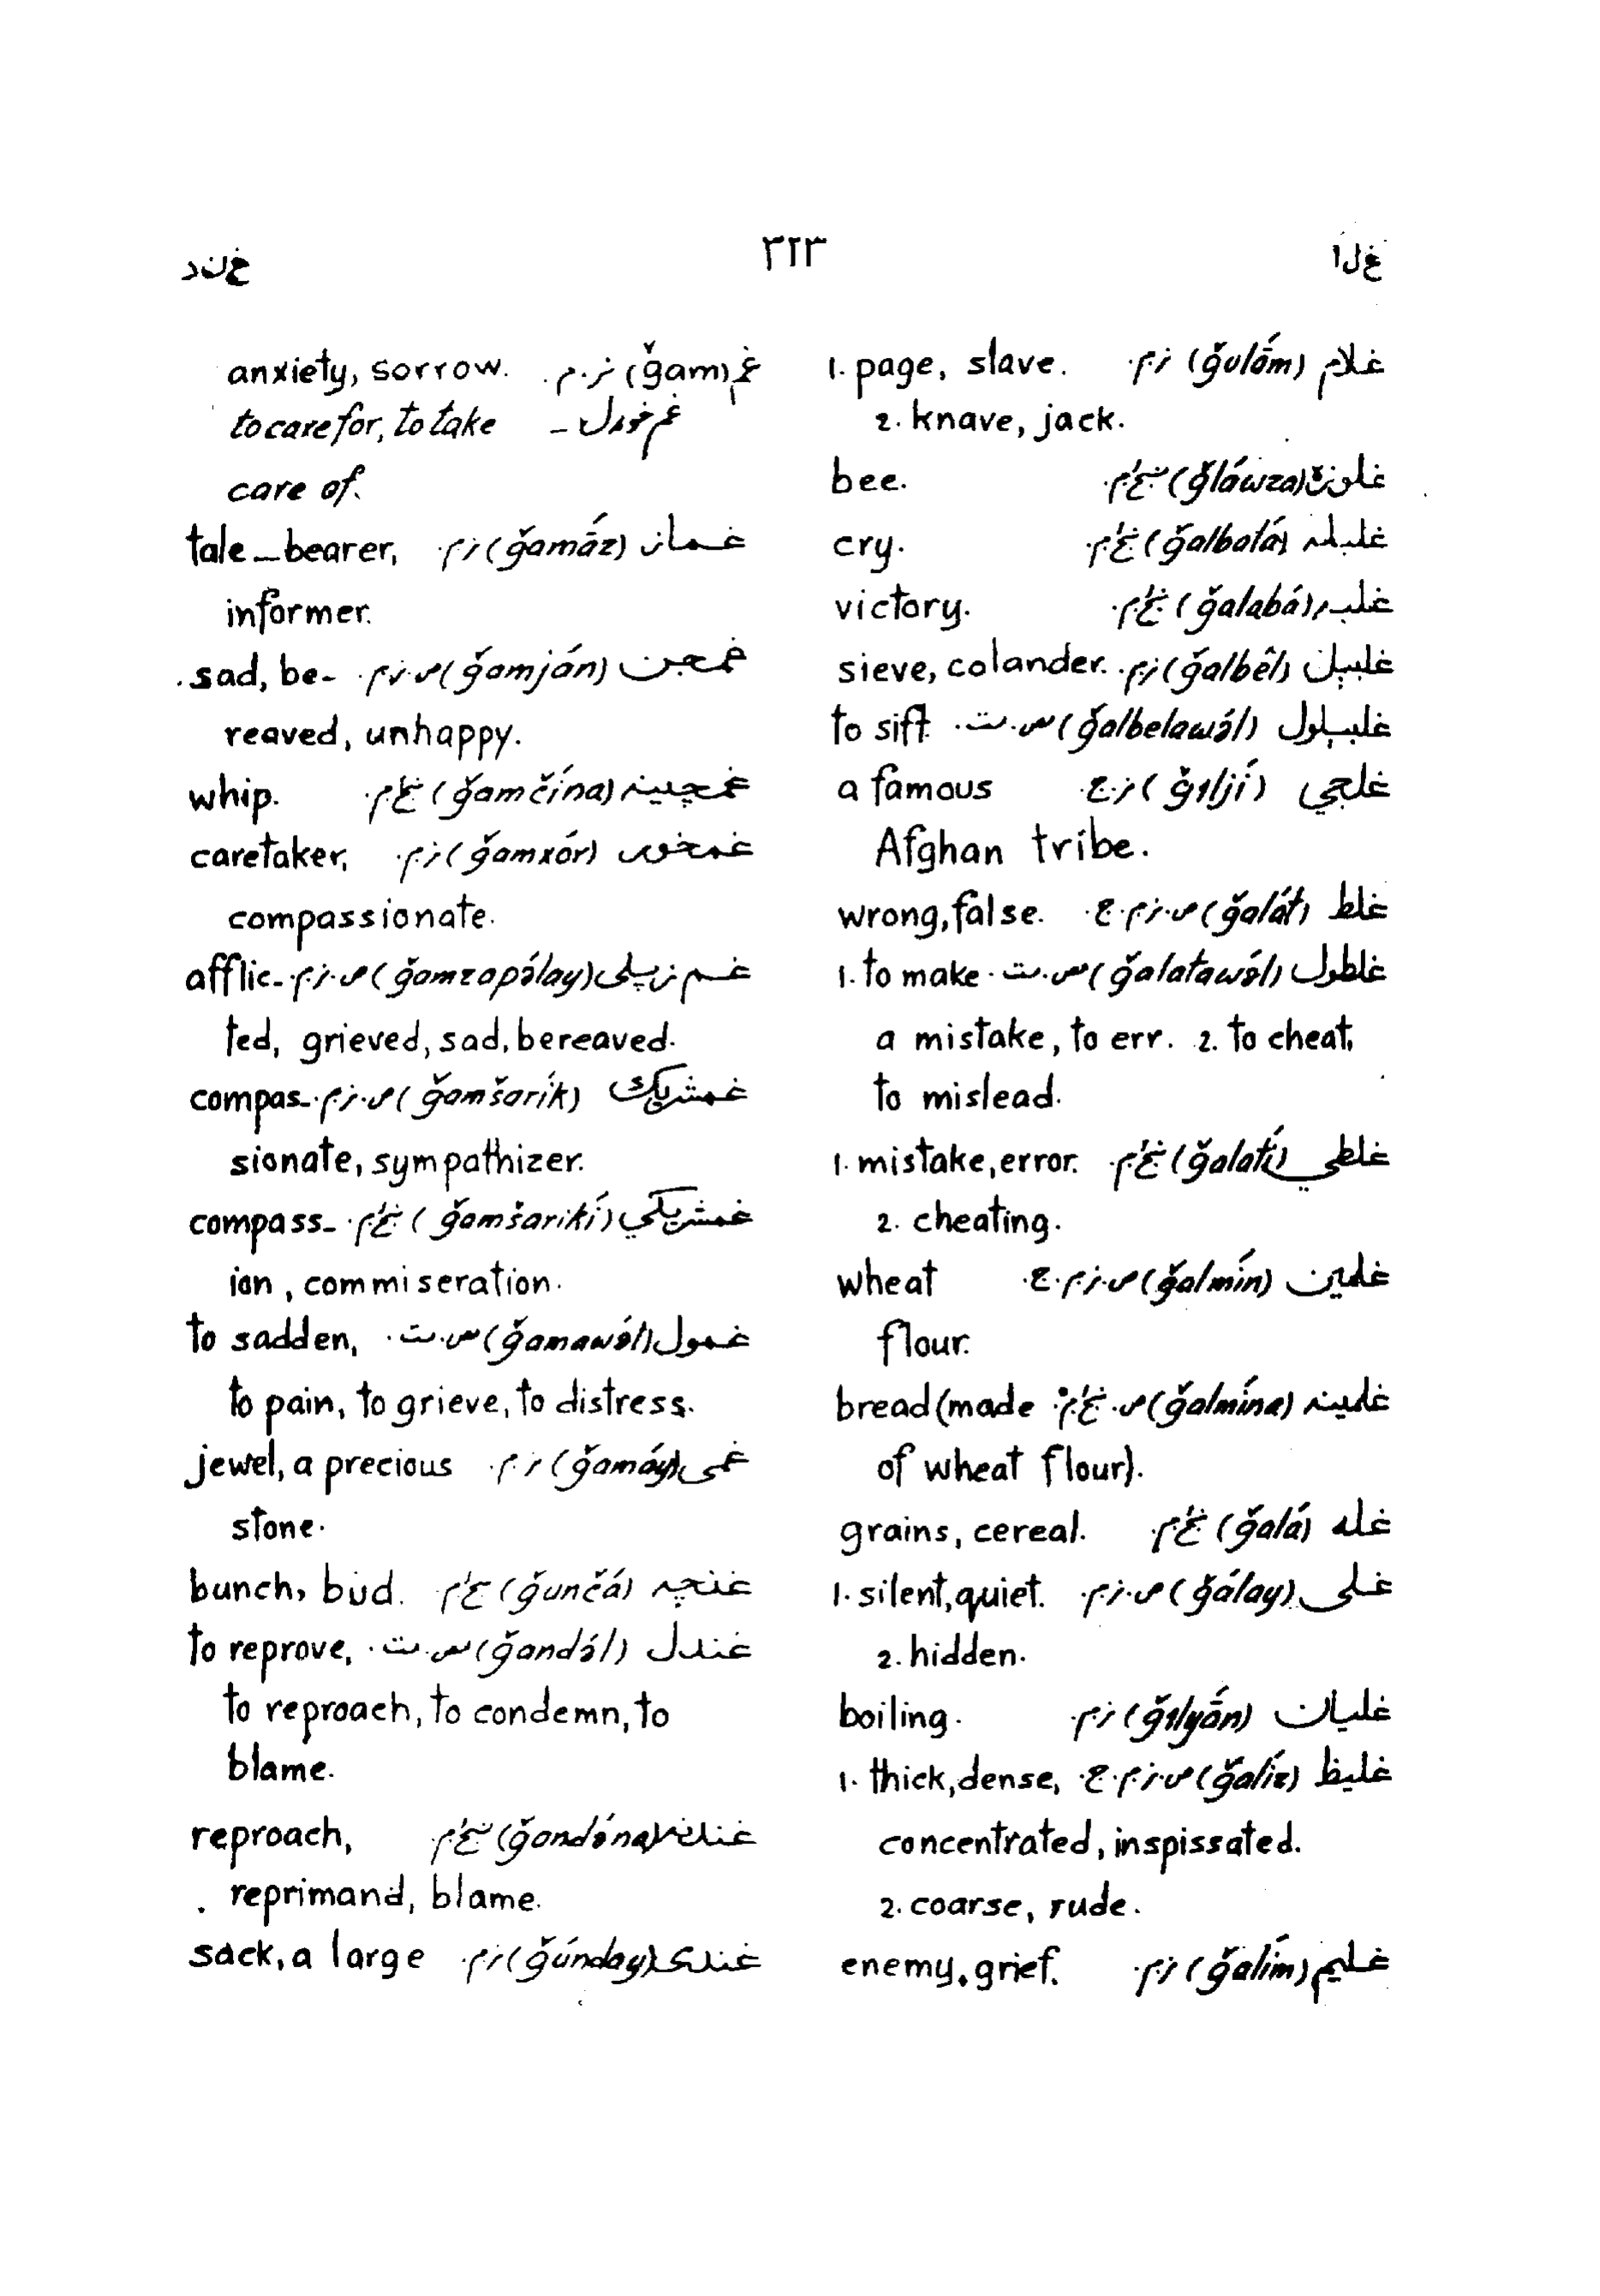 غلا
۳۲۳
غند
غلام (ğulā́m) ز.م. 1. page, slave.
2. knave, jack.
غلاوزه (ğláwza) ښځ.م. bee.
غلبله (ğalbalá) ښځ.م. cry.
غلبه (ğalabá) ښځ.م. victory.
غلبېل (ğalbêl) ز.م. sieve, colander.
غلبېلول (ğalbelawə́l) س.ت. to sift
غلجي (ğiljí) ز.ج. a famous
Afghan tribe.
غلط (ğalát) ص.ز.م.ج. wrong, false.
غلطول (ğalatawə́l) س.ت. 1. to make
a mistake, to err. 2. to cheat,
to mislead.
غلطي (ğalatí) ښځ.م. 1. mistake, error.
2. cheating.
غلمين (ğalmín) ص.ز.م.ج. wheat
flour.
غلمينه (ğalmína) ص.ښځ.م. bread (made
of wheat flour).
غله (ğalá) ښځ.م. grains, cereal.
غلی (ğálay) ص.ز.م. 1. silent, quiet.
2. hidden.
غليان (ğilyā́n) ز.م. boiling.
غليظ (ğalíz) ص.ز.م.ج. 1. thick, dense,
concentrated, inspissated.
2. coarse, rude.
غليم (ğalím) ز.م. enemy, grief.
غم (ğam) ز.م. anxiety, sorrow.
غم خوړل – to care for, to take
care of.
غماز (ğamā́z) ز.م. tale-bearer,
informer.
غمجن (ğamján) ص.ز.م. sad, be-
reaved, unhappy.
غمچينه (ğamčína) ښځ.م. whip.
غمخور (ğamxór) ز.م. caretaker,
compassionate.
غم زپلی (ğamzapə́lay) ص.ز.م. afflic-
ted, grieved, sad, bereaved.
غمشريک (ğamšarík) ص.ز.م. compas-
sionate, sympathizer.
غمشريکي (ğamšarikí) ښځ.م. compass-
ion, commiseration.
غمول (ğamawə́l) س.ت. to sadden,
to pain, to grieve, to distress.
غمی (ğamáy) ز.م. jewel, a precious
stone.
غنچه (ğunčá) ښځ.م. bunch, bud.
غندل (ğandə́l) س.ت. to reprove,
to reproach, to condemn, to
blame.
غندنه (ğandə́na) ښځ.م. reproach,
reprimand, blame.
غندی (ğúnday) ز.م. sack, a large